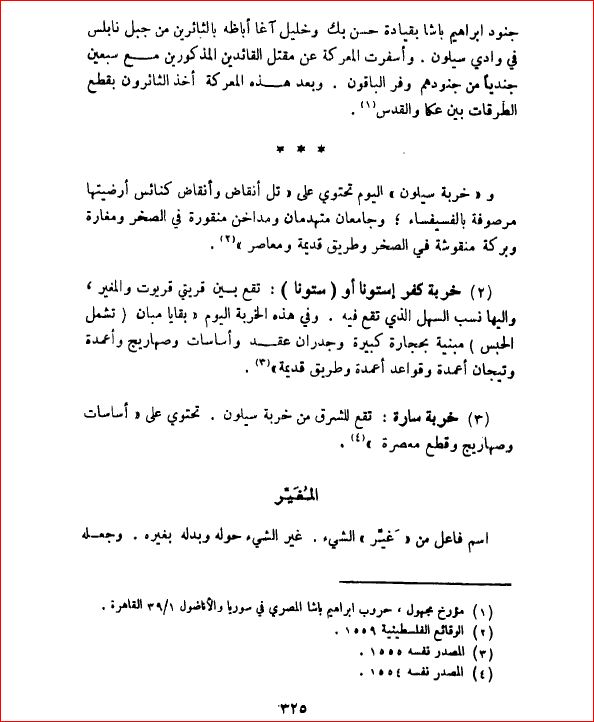 جنود ابراهيم باشا بقيادة حسن بك وخليل آغا أباظه بالثائرين من جبل نابلس
في وادي سيلون . وأسفرت المعركة عن مقتل القائدين المذكورين مـــع سبعين
جندياً من جنودهم وفر الباقون . وبعد هـــذه المعركة أخذ الثائرون بقطع
الطرقات بين عكا والقدس(١) .
* * *
و « خربة سيلون » اليوم تحتوي على « تل أنقاض وأنقاض كنائس أرضيتها
مرصوفة بالفسيفساء ؛ وجامعان متهدمان ومداخن منقورة في الصخر ومغارة
وبركة منقوشة في الصخر وطريق قديمة ومعاصر »(٢) .
(٢) خربة كفر إستونا أو ( ستونا ) : تقع بـــين قريتي قريوت والمغير ،
واليها نسب السهل الذي تقع فيه . وفي هذه الخربة اليوم « بقايا مبان ( تشمل
الحبس ) مبنية بحجارة كبيرة وجدران عقـــد وأساسات وصهاريج وأعمدة
وتيجان أعمدة وقواعد أعمدة وطريق قديمة»(٣) .
(٣) خربة سارة : تقع للشرق من خربة سيلون . تحتوي على « أساسات
وصهاريج وقطع معصرة »(٤) .
المُغَيّر
اسم فاعل من « غَيَّر » الشيء . غير الشيء حوله وبدله بغيره . وجعـــله
(١) مؤرخ مجهول ، حروب ابراهيم باشا المصري في سوريا والأناضول ٣٩/١ القاهرة .
(٢) الوقائع الفلسطينية ١٥٥٩ .
(٣) المصدر نفسه ١٥٥٥ .
(٤) المصدر نفسه ١٥٥٤ .
٣٢٥